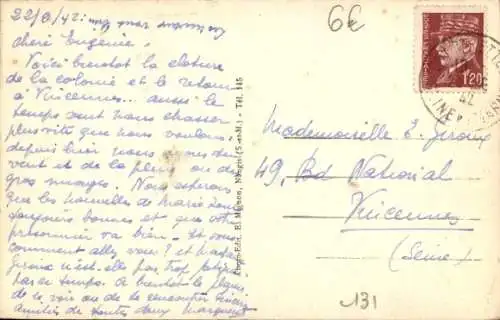 22/8/42
6€
chère Eugénie.
Voici bientôt la clôture
de la colonie et le retour
à Vincennes... aussi le
temps veut nous chasser
plus vite que nous voulons.
depuis hier nous avons du
vent et de la pluie ou de
gros nuages. Nous espérons
que les nouvelles de Marie
toujours bonnes et que votre
prisonnier va bien. Et vous
comment allez vous? et Madame
Giroux n'est-elle pas trop
par ce temps. A bientôt le plaisir
de se voir ou de se rencontrer
Amitiés de toutes deux Marguerite
Mademoiselle E. Giroux
49, Bd National
Vincennes
(Seine)
131
1F20
Tél. 145